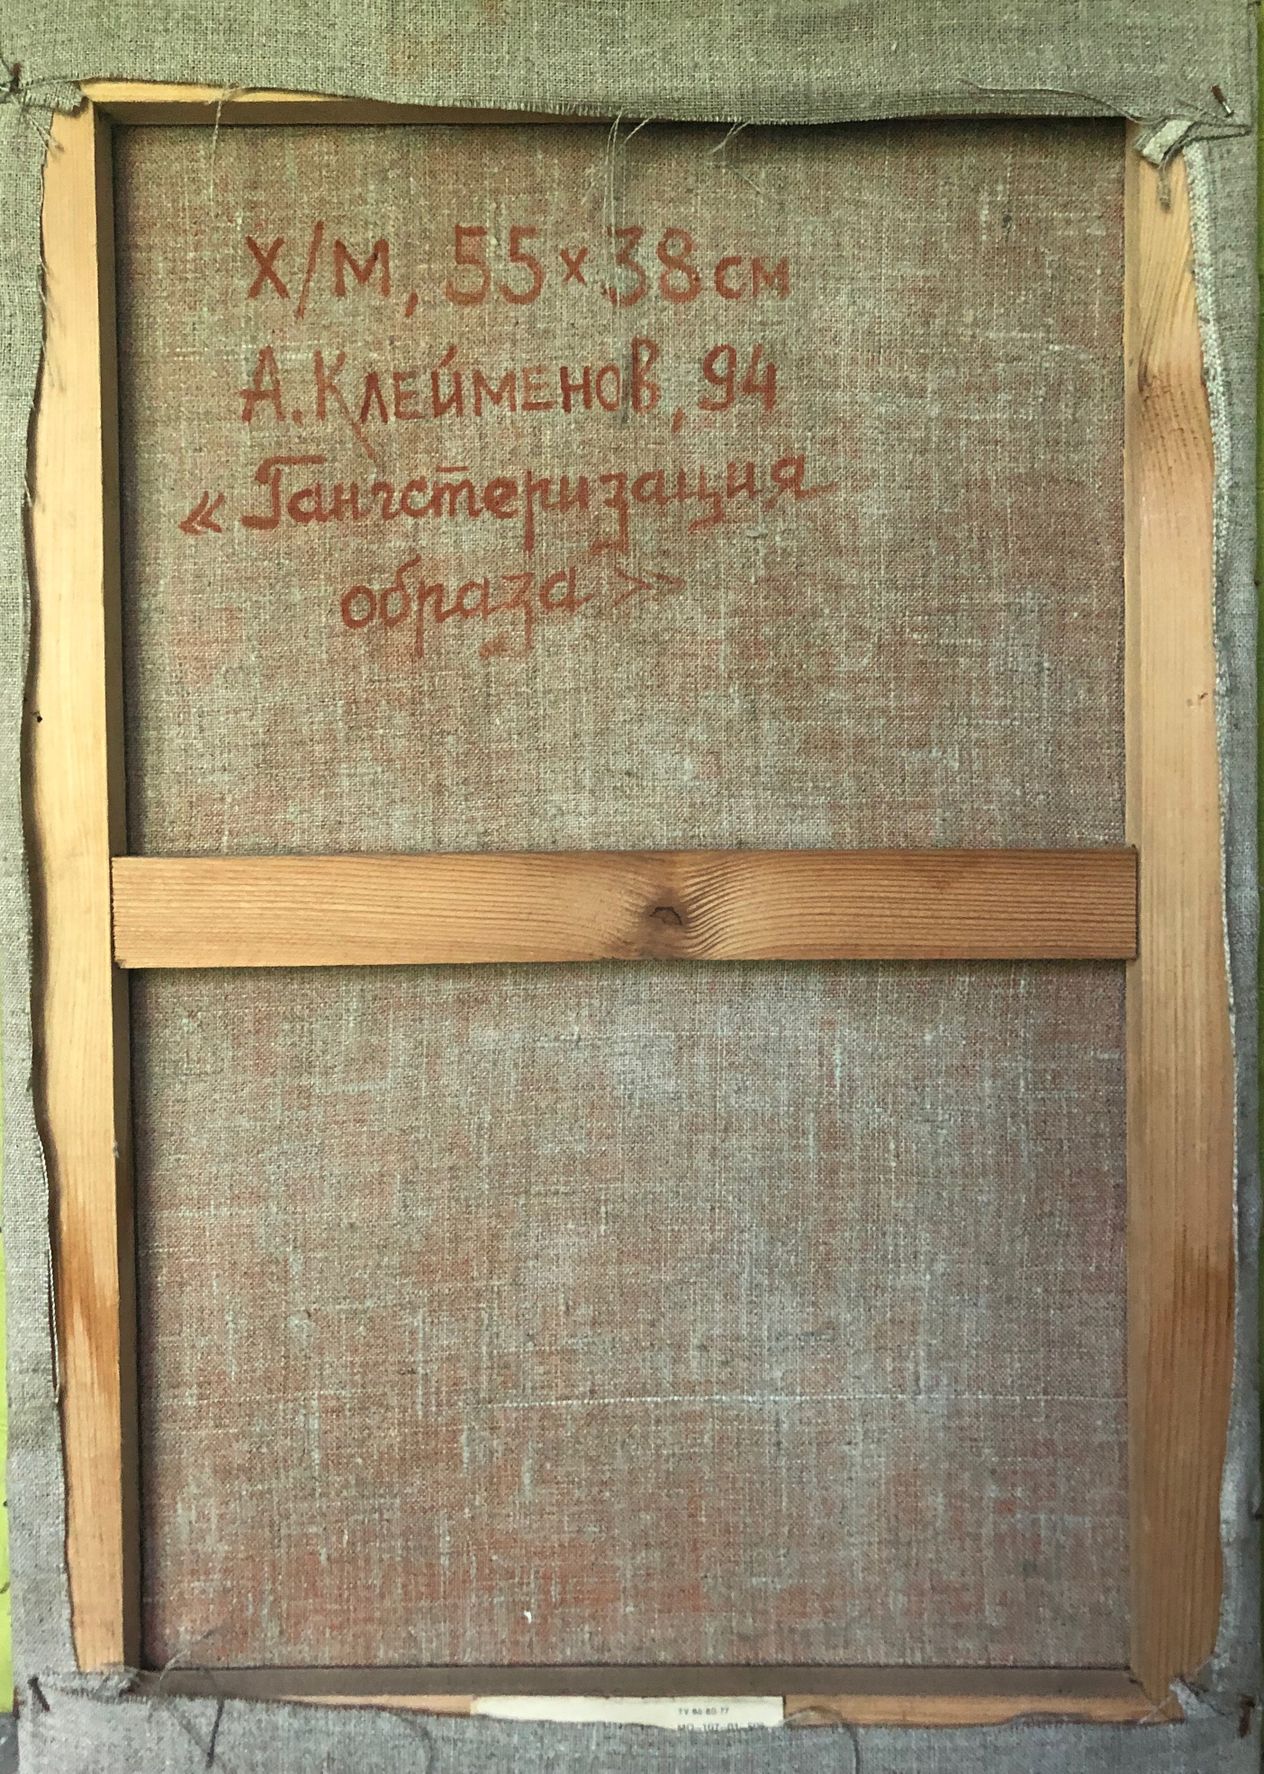 Х/М, 55×38 см
А. Клейменов, 94
«Гангстеризация
образа»